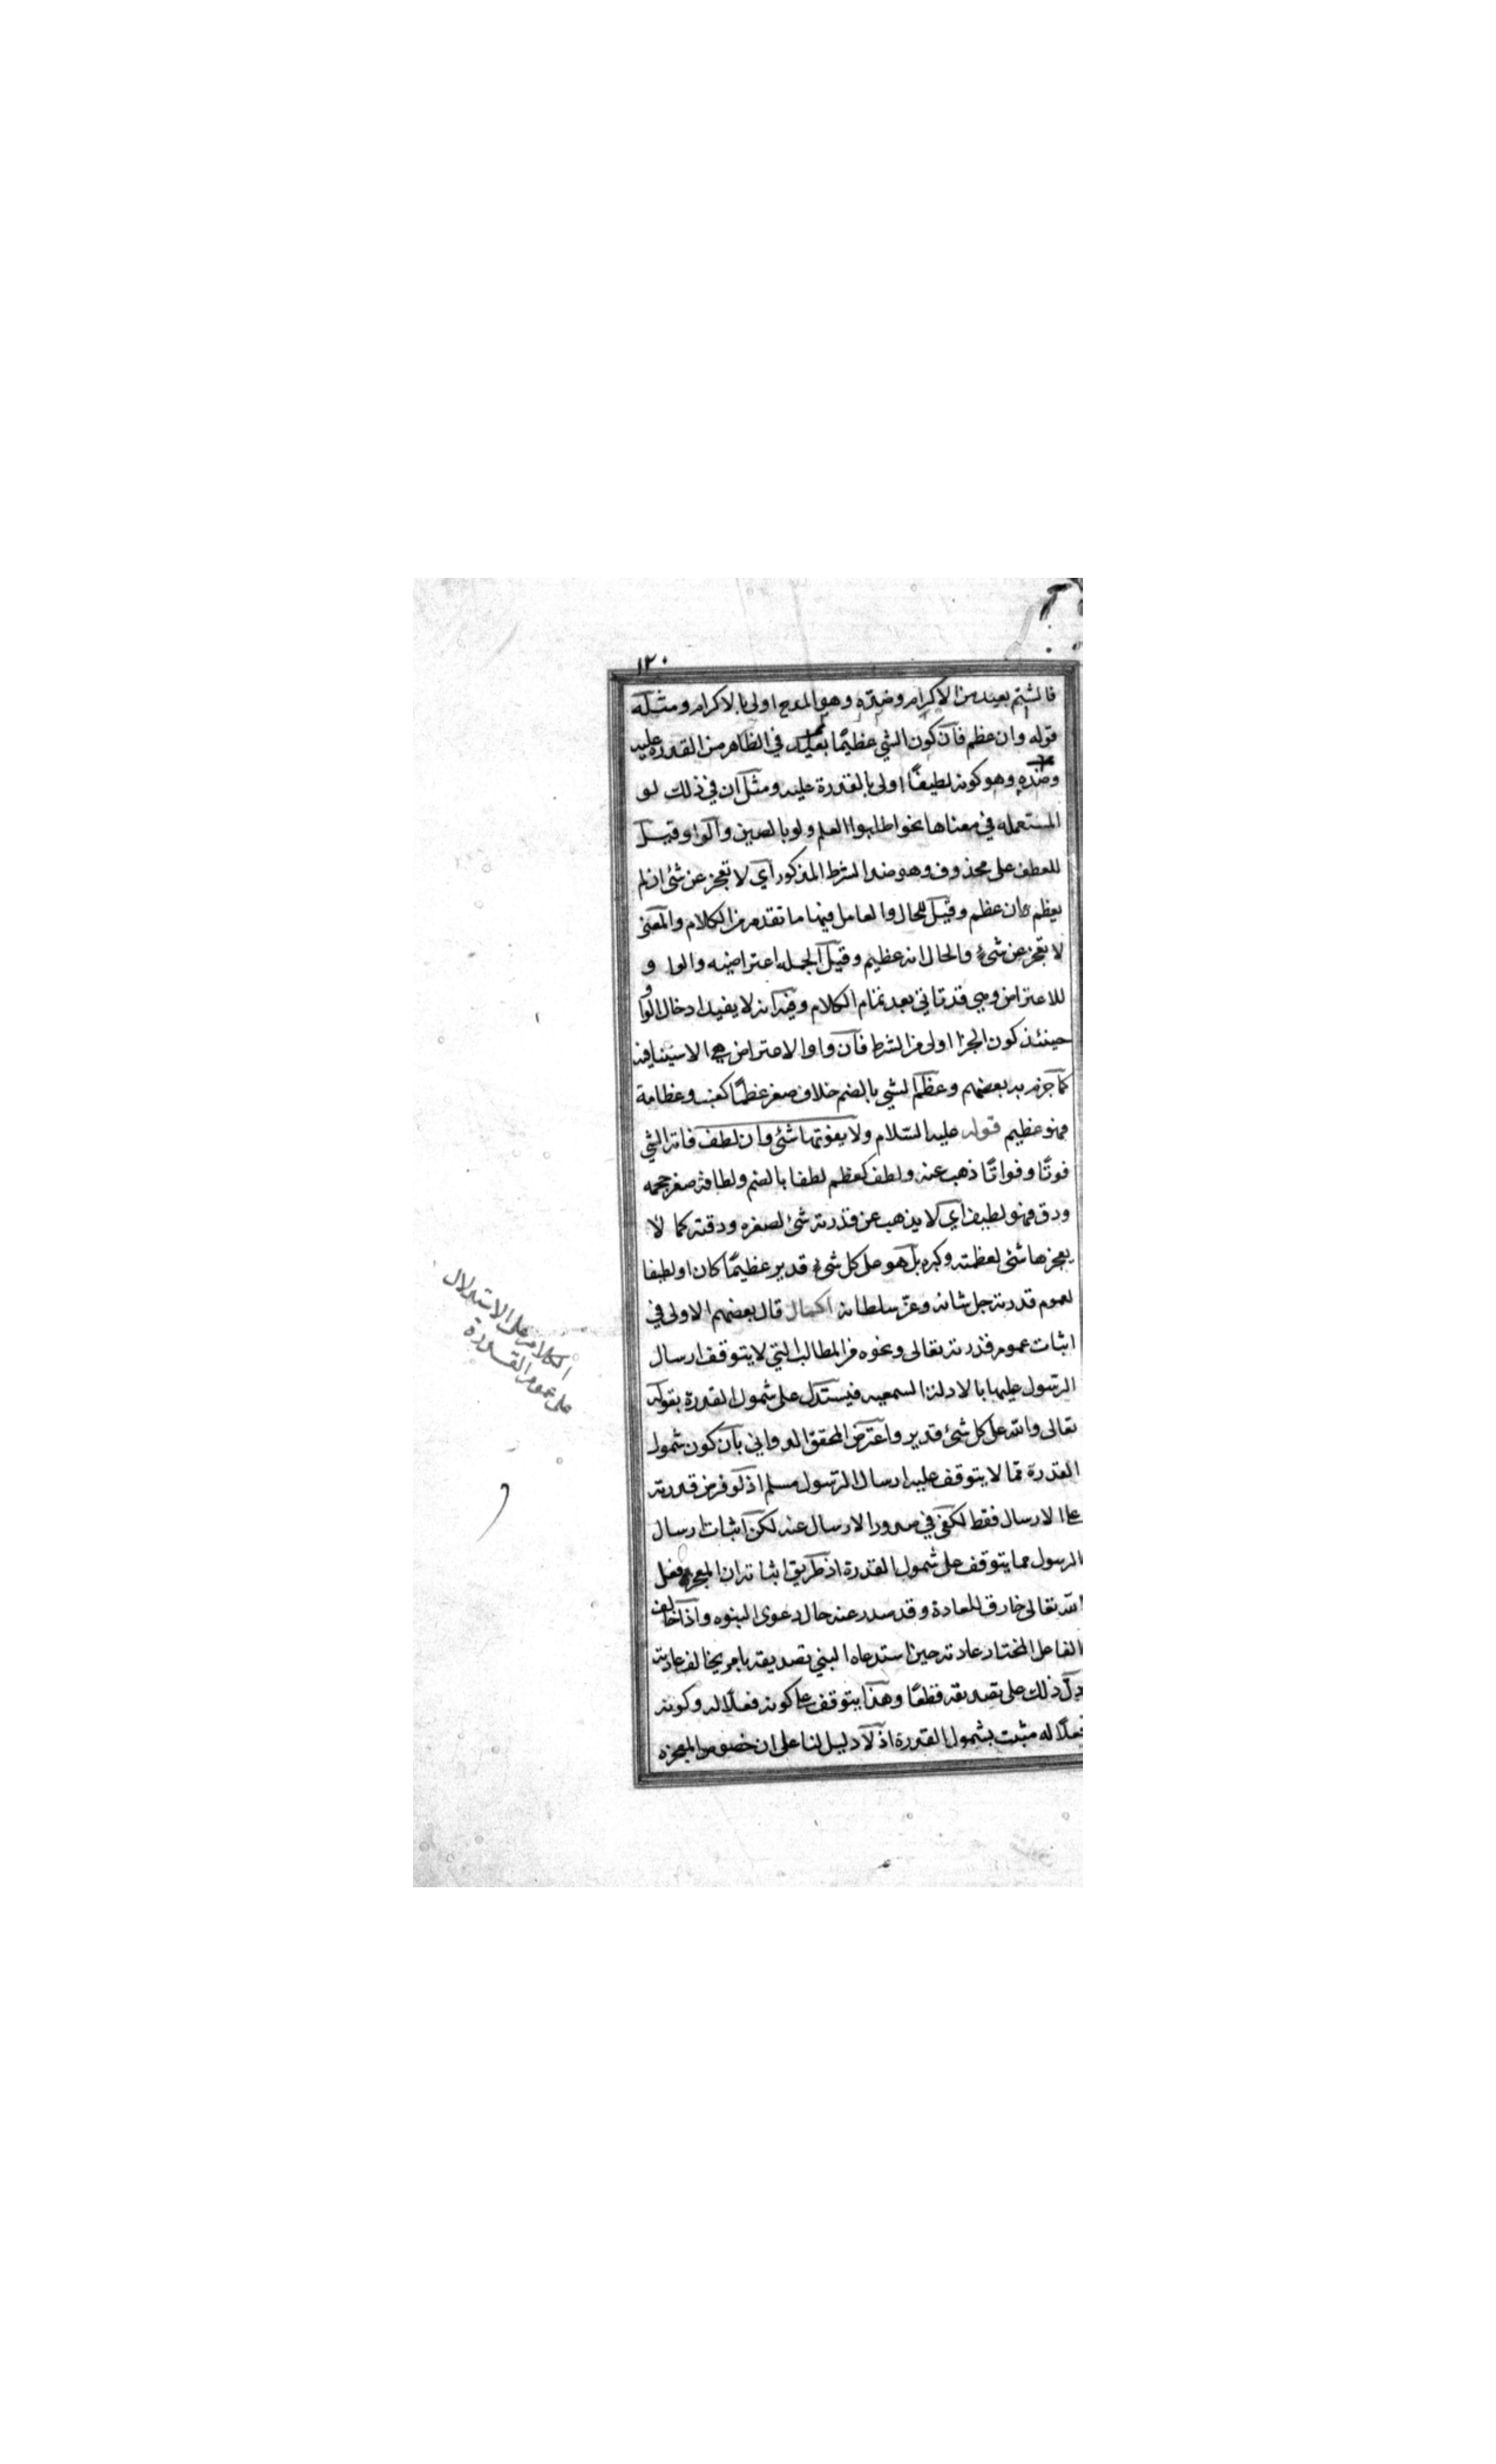 ١٢٠
فالشتم بعيد من الاكرام وضده وهو المدح اولى بالاكرام ومثله
قوله وان عظم فان كون الشي عظيمًا بعيد في الظاهر من القدرة عليه
وضده وهو كونه لطيفًا اولى بالقدرة عليه ومثل ان في ذلك لو
المستعمله في معناها نحو اطلبوا العلم ولو بالصين والواو وقيل
للعطف على محذوف وهو ضد الشرط المذكور اي لا تعجز عن شئ ان لم
يعظم وان عظم وقيل للحال والعامل فيها ما تقدم من الكلام والمعنى
لا تعجز عن شئ والحال انه عظيم وقيل الجمله اعتراضيه والوا و
للاعتراض وهي قد تاتي بعد تمام الكلام وفيه انه لا يفيد ادخال الواو
حينئذ كون الجزا اولى من الشرط فان واو الاعتراض هي الاستينافيه
كما جزم به بعضهم وعظم الشي بالضم خلاف صغر عظمًا كعنب وعظامة
فهو عظيم قوله عليه السّلام ولا يفوتها شئ وان لطف فاته الشي
فوتًا وفواتًا ذهب عنه ولطف كعظم لطفا بالضم ولطافة صغر حجمه
ودق فهو لطيف اي لا يذهب عن قدرته شئ لصغره ودقته كما لا
يعجزها شئ لعظمته وكبره بل هو على كل شئ قدير عظيمًا كان او لطيفا
لعموم قدرته جل شانه وعزّ سلطانه اكمال قال بعضهم الاولى في
اثبات عموم قدرته تعالى ونحوه من المطالب التي لا يتوقف ارسال
الرسول عليها بالادلة السمعيه فيستدل على شمول القدرة بقوله
تعالى والله على كل شئ قدير واعترض المحقق الدواني بان كون شمول
القدرة ممّا لا يتوقف عليه ارسال الرسول مسلم اذ لو فرض قدرته
على الارسال فقط لكفى في صدور الارسال عنه لكن اثبات ارسال
الرسول مما يتوقف على شمول القدرة اذ طريق اثباته ان المعجزة فعل
الله تعالى خارق للعادة وقد صدر عنه حال دعوى النبوه واذا خالف
الفاعل المختار عادته حين استدعاه النبي تصديقه بامر يخالف عادته
دل ذلك على تصديقه قطعًا وهذا يتوقف على كونه فعلًا له وكونه
فعلًا له مثبت بشمول القدرة اذ لا دليل لنا على ان خصوص المعجزه
الكلام على الاستدلال
على عموم القدرة